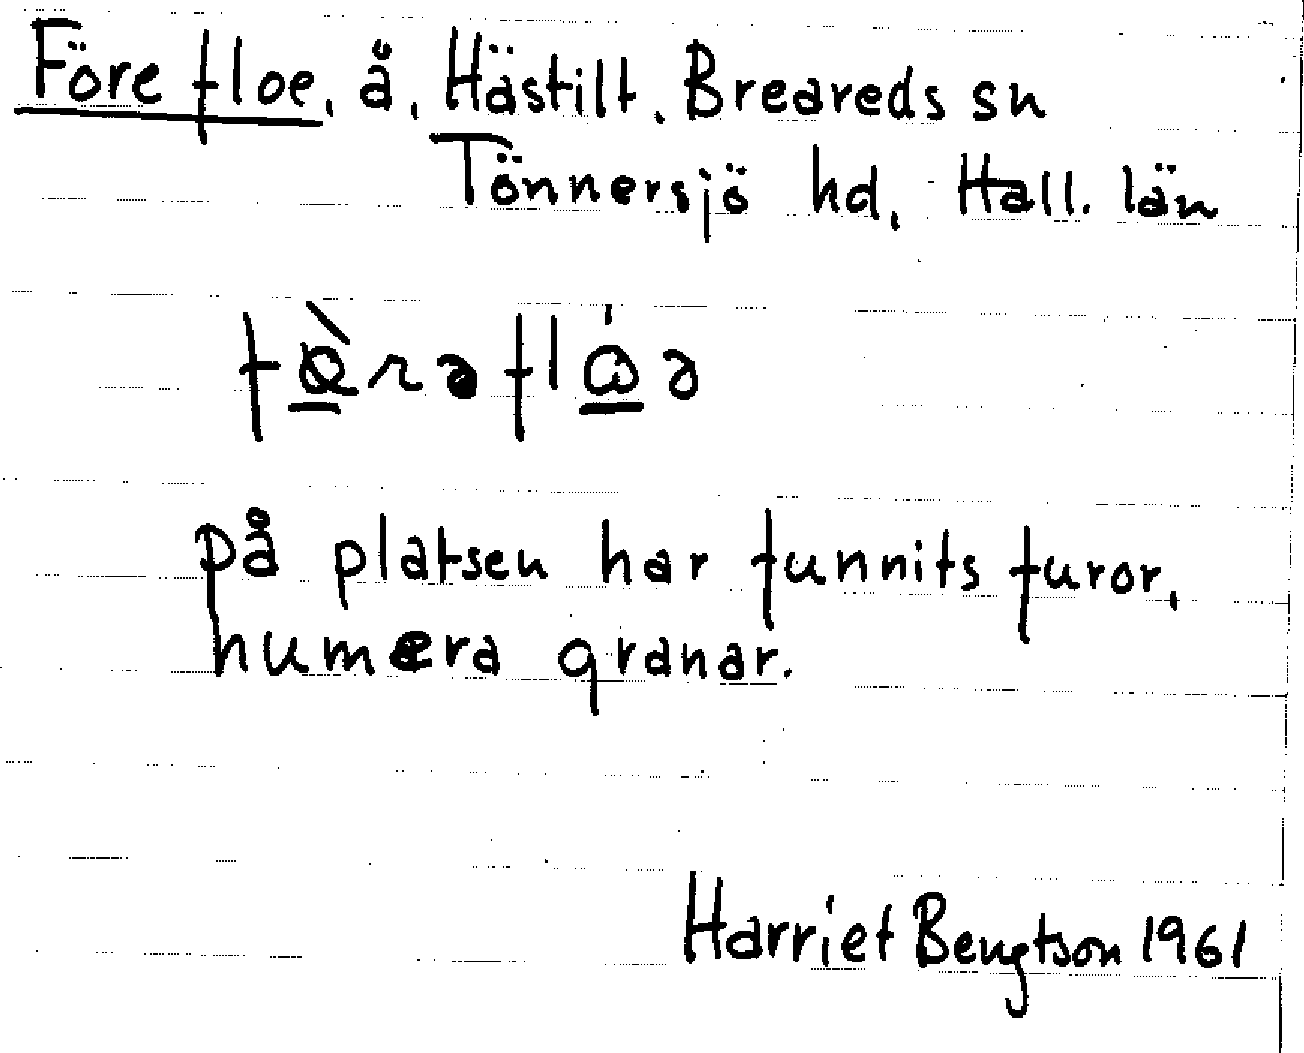 Före floe, å, Hästilt. Breareds sn
Tönnersjö hd, Hall. län
på platsen har funnits furor,
numera granar.
Harriet Bengtson 1961